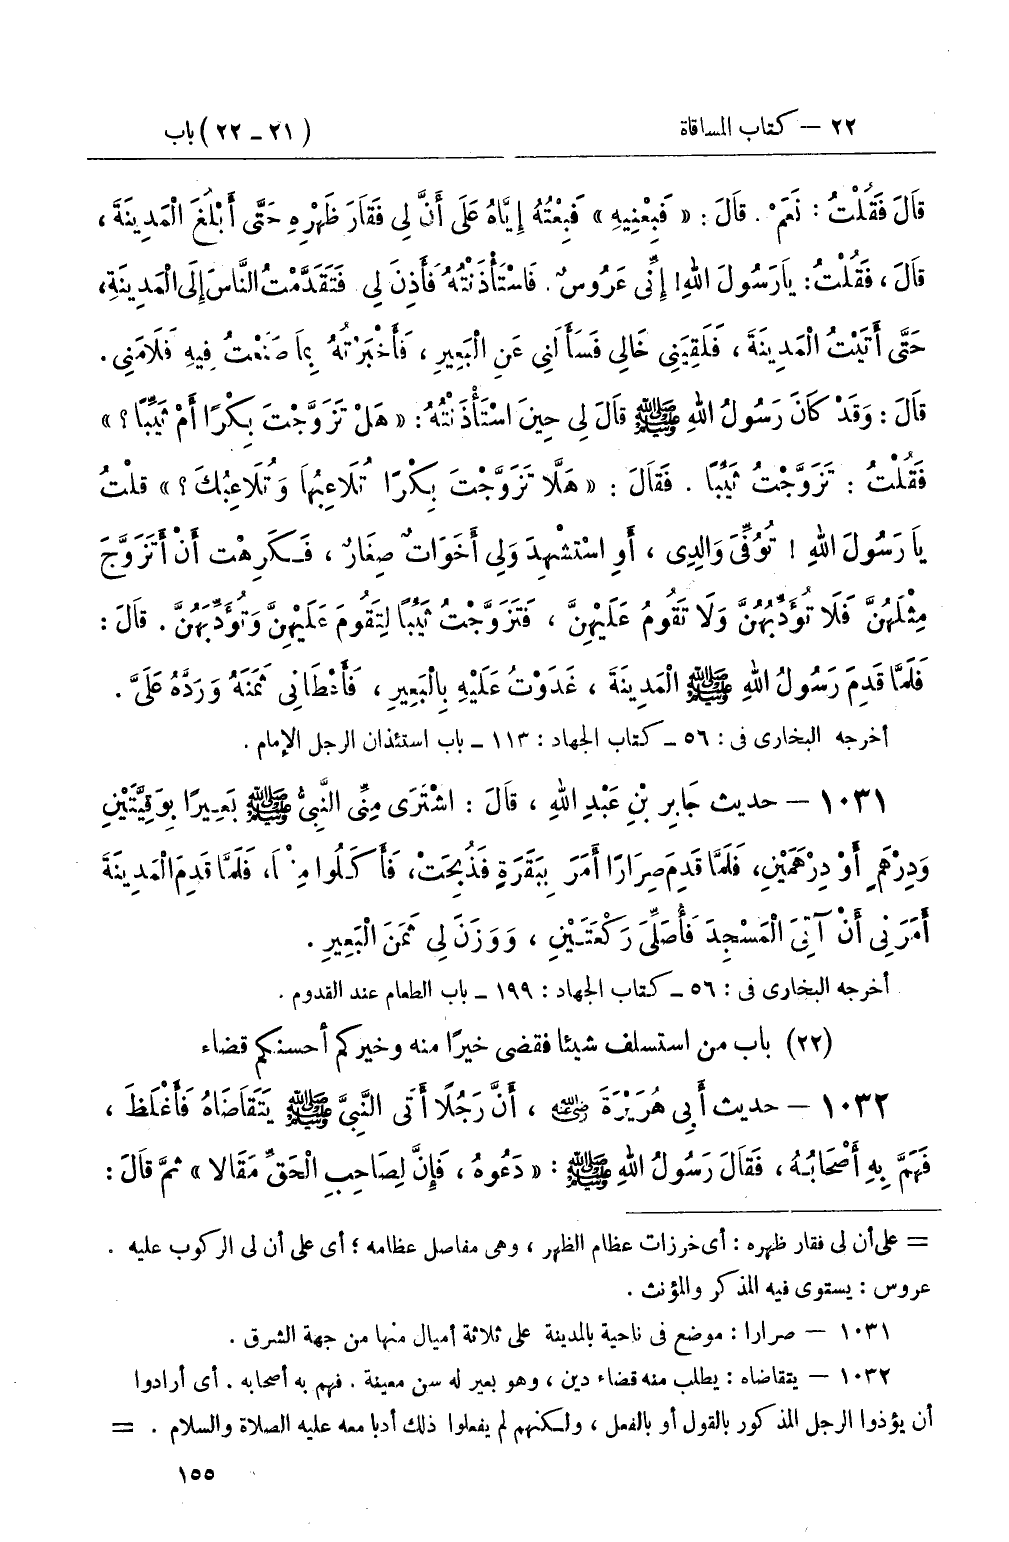 ٢٢ – كتاب المساقاة
(٢١ – ٢٢) باب
قَالَ فَقُلْتُ : نَعَمْ . قَالَ : « فَبِعْنِيهِ » فَبِعْتُهُ إِيَّاهُ عَلَى أَنَّ لِي فَقَارَ ظَهْرِهِ حَتَّى أَبْلُغَ الْمَدِينَةَ ،
قَالَ ، فَقُلْتُ : يَا رَسُولَ اللهِ! إِنِّي عَرُوسٌ . فَاسْتَأْذَنْتُهُ فَأَذِنَ لِي . فَتَقَدَّمْتُ النَّاسَ إِلَى الْمَدِينَةِ ،
حَتَّى أَتَيْتُ الْمَدِينَةَ ، فَلَقِيَنِي خَالِي فَسَأَلَنِي عَنِ الْبَعِيرِ ، فَأَخْبَرْتُهُ بِمَا صَنَعْتُ فِيهِ فَلَامَنِي .
قَالَ : وَقَدْ كَانَ رَسُولُ اللهِ ﷺ قَالَ لِي حِينَ اسْتَأْذَنْتُهُ : « هَلْ تَزَوَّجْتَ بِكْرًا أَمْ ثَيِّبًا ؟ »
فَقُلْتُ : تَزَوَّجْتُ ثَيِّبًا . فَقَالَ : « هَلَّا تَزَوَّجْتَ بِكْرًا تُلَاعِبُهَا وَتُلَاعِبُكَ ؟ » قلْتُ
يَا رَسُولَ اللهِ ! تُوُفِّيَ وَالِدِي ، أَوِ اسْتُشْهِدَ وَلِي أَخَوَاتٌ صِغَارٌ ، فَكَرِهْت أَنْ أَتَزَوَّجَ
مِثْلَهُنَّ فَلَا تُؤَدِّبُهُنَّ وَلَا تَقُومُ عَلَيْهِنَّ ، فَتَزَوَّجْتُ ثَيِّبًا لِتَقُومَ عَلَيْهِنَّ وَتُؤَدِّبَهُنَّ . قَالَ :
فَلَمَّا قَدِمَ رَسُولُ اللهِ ﷺ الْمَدِينَةَ ، غَدَوْتُ عَلَيْهِ بِالْبَعِيرِ ، فَأَعْطَانِي ثَمَنَهُ وَرَدَّهُ عَلَيَّ .
أخرجه البخارى فى : ٥٦ – كتاب الجهاد : ١١٣ – باب استئذان الرجل الإمام .
١٠٣١ – حديث جَابِرِ بْنِ عَبْدِ اللهِ ، قَالَ : اشْتَرَى مِنِّي النَّبِيُّ ﷺ بَعِيرًا بِوَقِيَّتَيْنِ
وَدِرْهَمٍ أَوْ دِرْهَمَيْنِ، فَلَمَّا قَدِمَ صِرَارًا أَمَرَ بِبَقَرَةٍ فَذُبِحَتْ، فَأَكَلُوا مِنْهَا، فَلَمَّا قَدِمَ الْمَدِينَةَ
أَمَرَنِي أَنْ آتِيَ الْمَسْجِدَ فَأُصَلِّيَ رَكْعَتَيْنِ ، وَوَزَنَ لِي ثَمَنَ الْبَعِيرِ .
أخرجه البخارى فى : ٥٦ – كتاب الجهاد : ١٩٩ – باب الطعام عند القدوم .
(٢٢) باب من استسلف شيئا فقضى خيرًا منه وخيركم أحسنكم قضاء
١٠٣٢ – حديث أَبِي هُرَيْرَةَ رضي الله عنه ، أَنَّ رَجُلًا أَتَى النَّبِيَّ ﷺ يَتَقَاضَاهُ فَأَغْلَظَ ،
فَهَمَّ بِهِ أَصْحَابُهُ ، فَقَالَ رَسُولُ اللهِ ﷺ : « دَعُوهُ ، فَإِنَّ لِصَاحِبِ الْحَقِّ مَقَالًا » ثمَّ قَالَ :
= على أن لى فقار ظهره : أى خرزات عظام الظهر ، وهى مفاصل عظامه ؛ أى على أن لى الركوب عليه .
عروس : يستوى فيه المذكر والمؤنث .
١٠٣١ – صرارا : موضع فى ناحية بالمدينة على ثلاثة أميال منها من جهة الشرق .
١٠٣٢ – يتقاضاه : يطلب منه قضاء دين ، وهو بعير له سن معينة . فهم به أصحابه . أى أرادوا
أن يؤذوا الرجل المذكور بالقول أو بالفعل ، ولكنهم لم يفعلوا ذلك أدبا معه عليه الصلاة والسلام . =
١٥٥